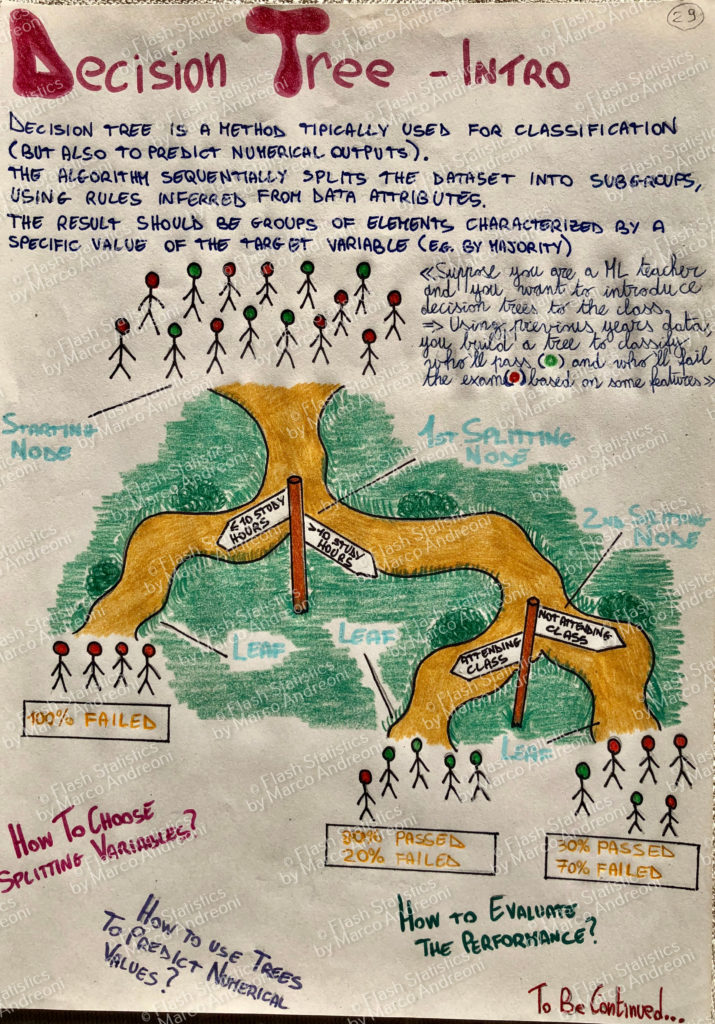 29
Decision Tree - Intro
DECISION TREE IS A METHOD TIPICALLY USED FOR CLASSIFICATION
(BUT ALSO TO PREDICT NUMERICAL OUTPUTS).
THE ALGORITHM SEQUENTIALLY SPLITS THE DATASET INTO SUBGROUPS,
USING RULES INFERRED FROM DATA ATTRIBUTES.
THE RESULT SHOULD BE GROUPS OF ELEMENTS CHARACTERIZED BY A
SPECIFIC VALUE OF THE TARGET VARIABLE (EG. BY MAJORITY)
«Suppose you are a ML teacher
and you want to introduce
decision trees to the class
⇒ Using previous years data,
you build a tree to classify
who'll pass (●) and who'll fail
the exam (●) based on some features»
STARTING
NODE
1ST SPLITTING
NODE
≤ 10 STUDY
HOURS
> 10 STUDY
HOURS
2ND SPLITTING
NODE
LEAF
LEAF
ATTENDING
CLASS
NOT ATTENDING
CLASS
LEAF
100% FAILED
80% PASSED
20% FAILED
30% PASSED
70% FAILED
HOW TO CHOOSE
SPLITTING VARIABLES?
HOW TO USE TREES
TO PREDICT NUMERICAL
VALUES?
HOW TO EVALUATE
THE PERFORMANCE?
To Be Continued...
© Flash Statistics
by Marco Andreoni